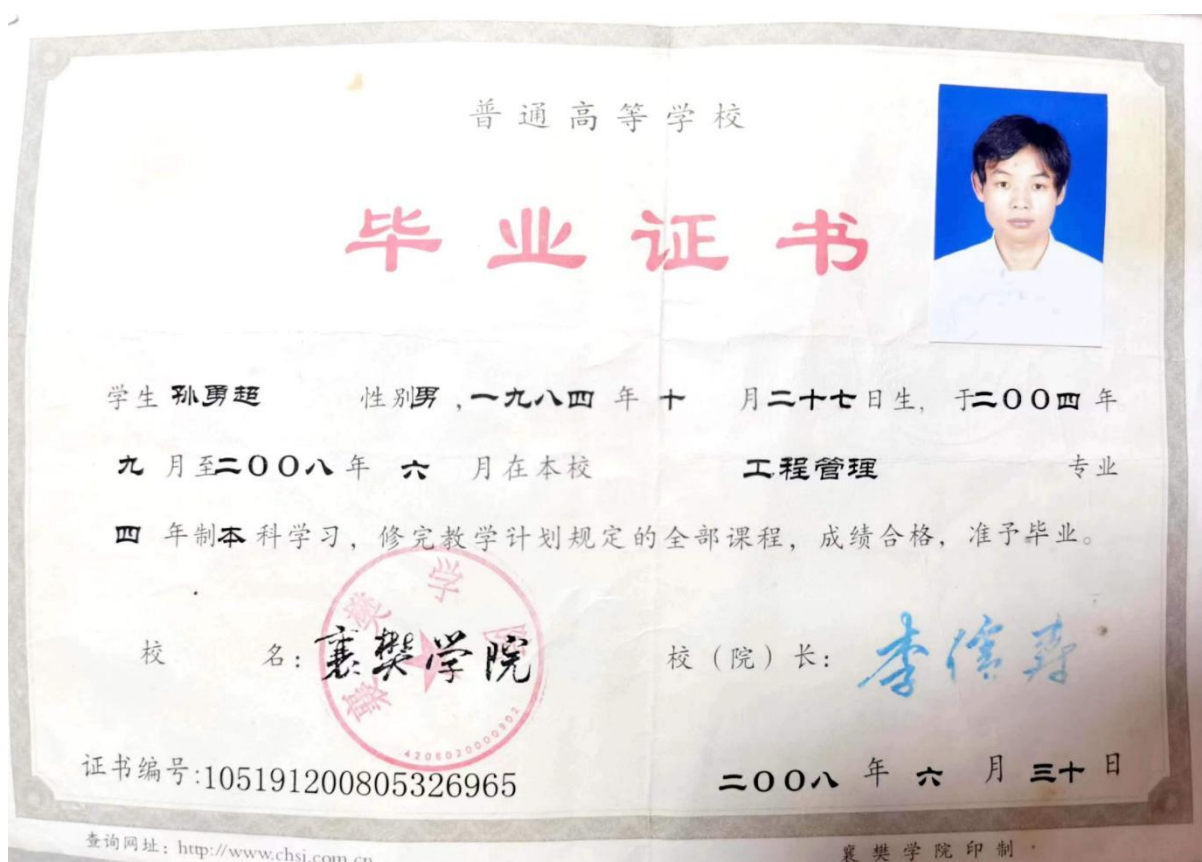 普通高等学校
毕业证书
学生 孙勇超 性别男,一九八四 年 十 月二十七日生, 于二〇〇四 年
九 月至二〇〇八 年 六 月在本校 工程管理 专业
四 年制本科学习, 修完教学计划规定的全部课程, 成绩合格, 准予毕业。
襄樊学院
校 名: 襄樊学院 校(院)长: 李儒寿
4206020000902
证书编号:105191200805326965 二〇〇八 年 六 月 三十 日
查询网址: http://www.chsi.com.cn 襄樊学院印制